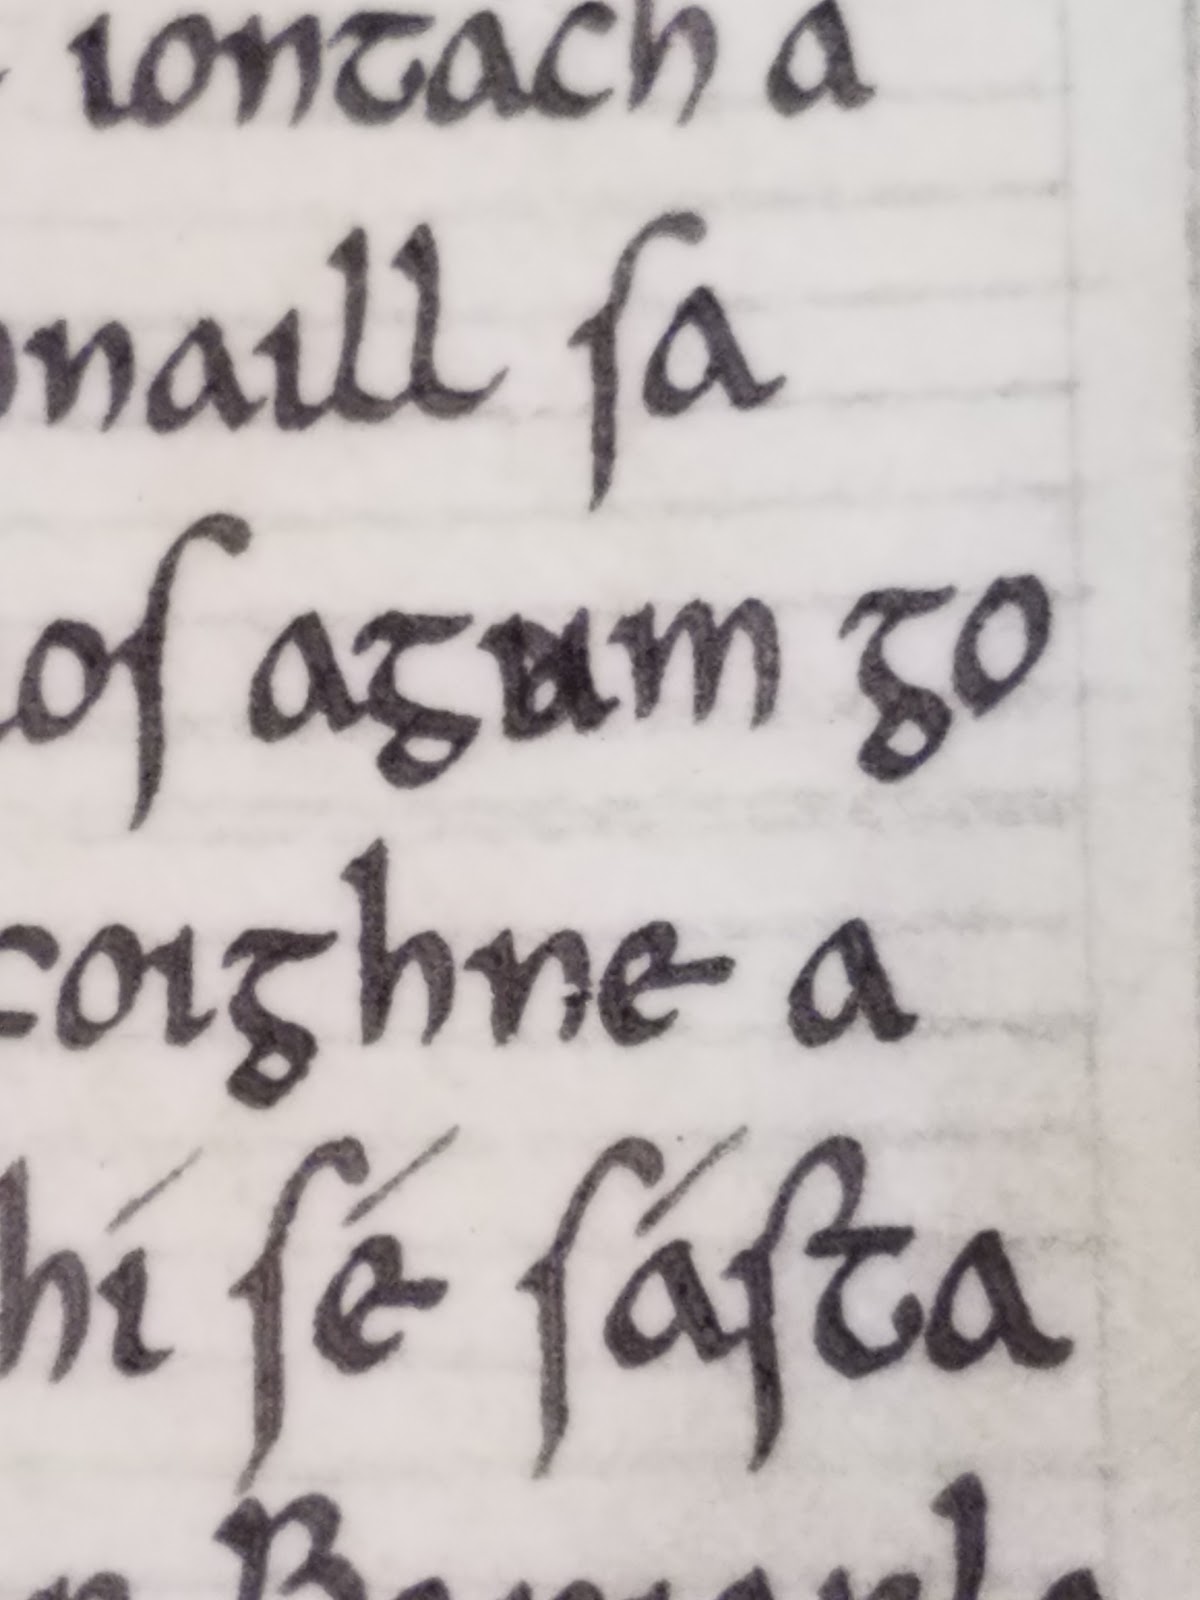 iontach a
onaill sa
os agum go
coighne a
hí sé sásta